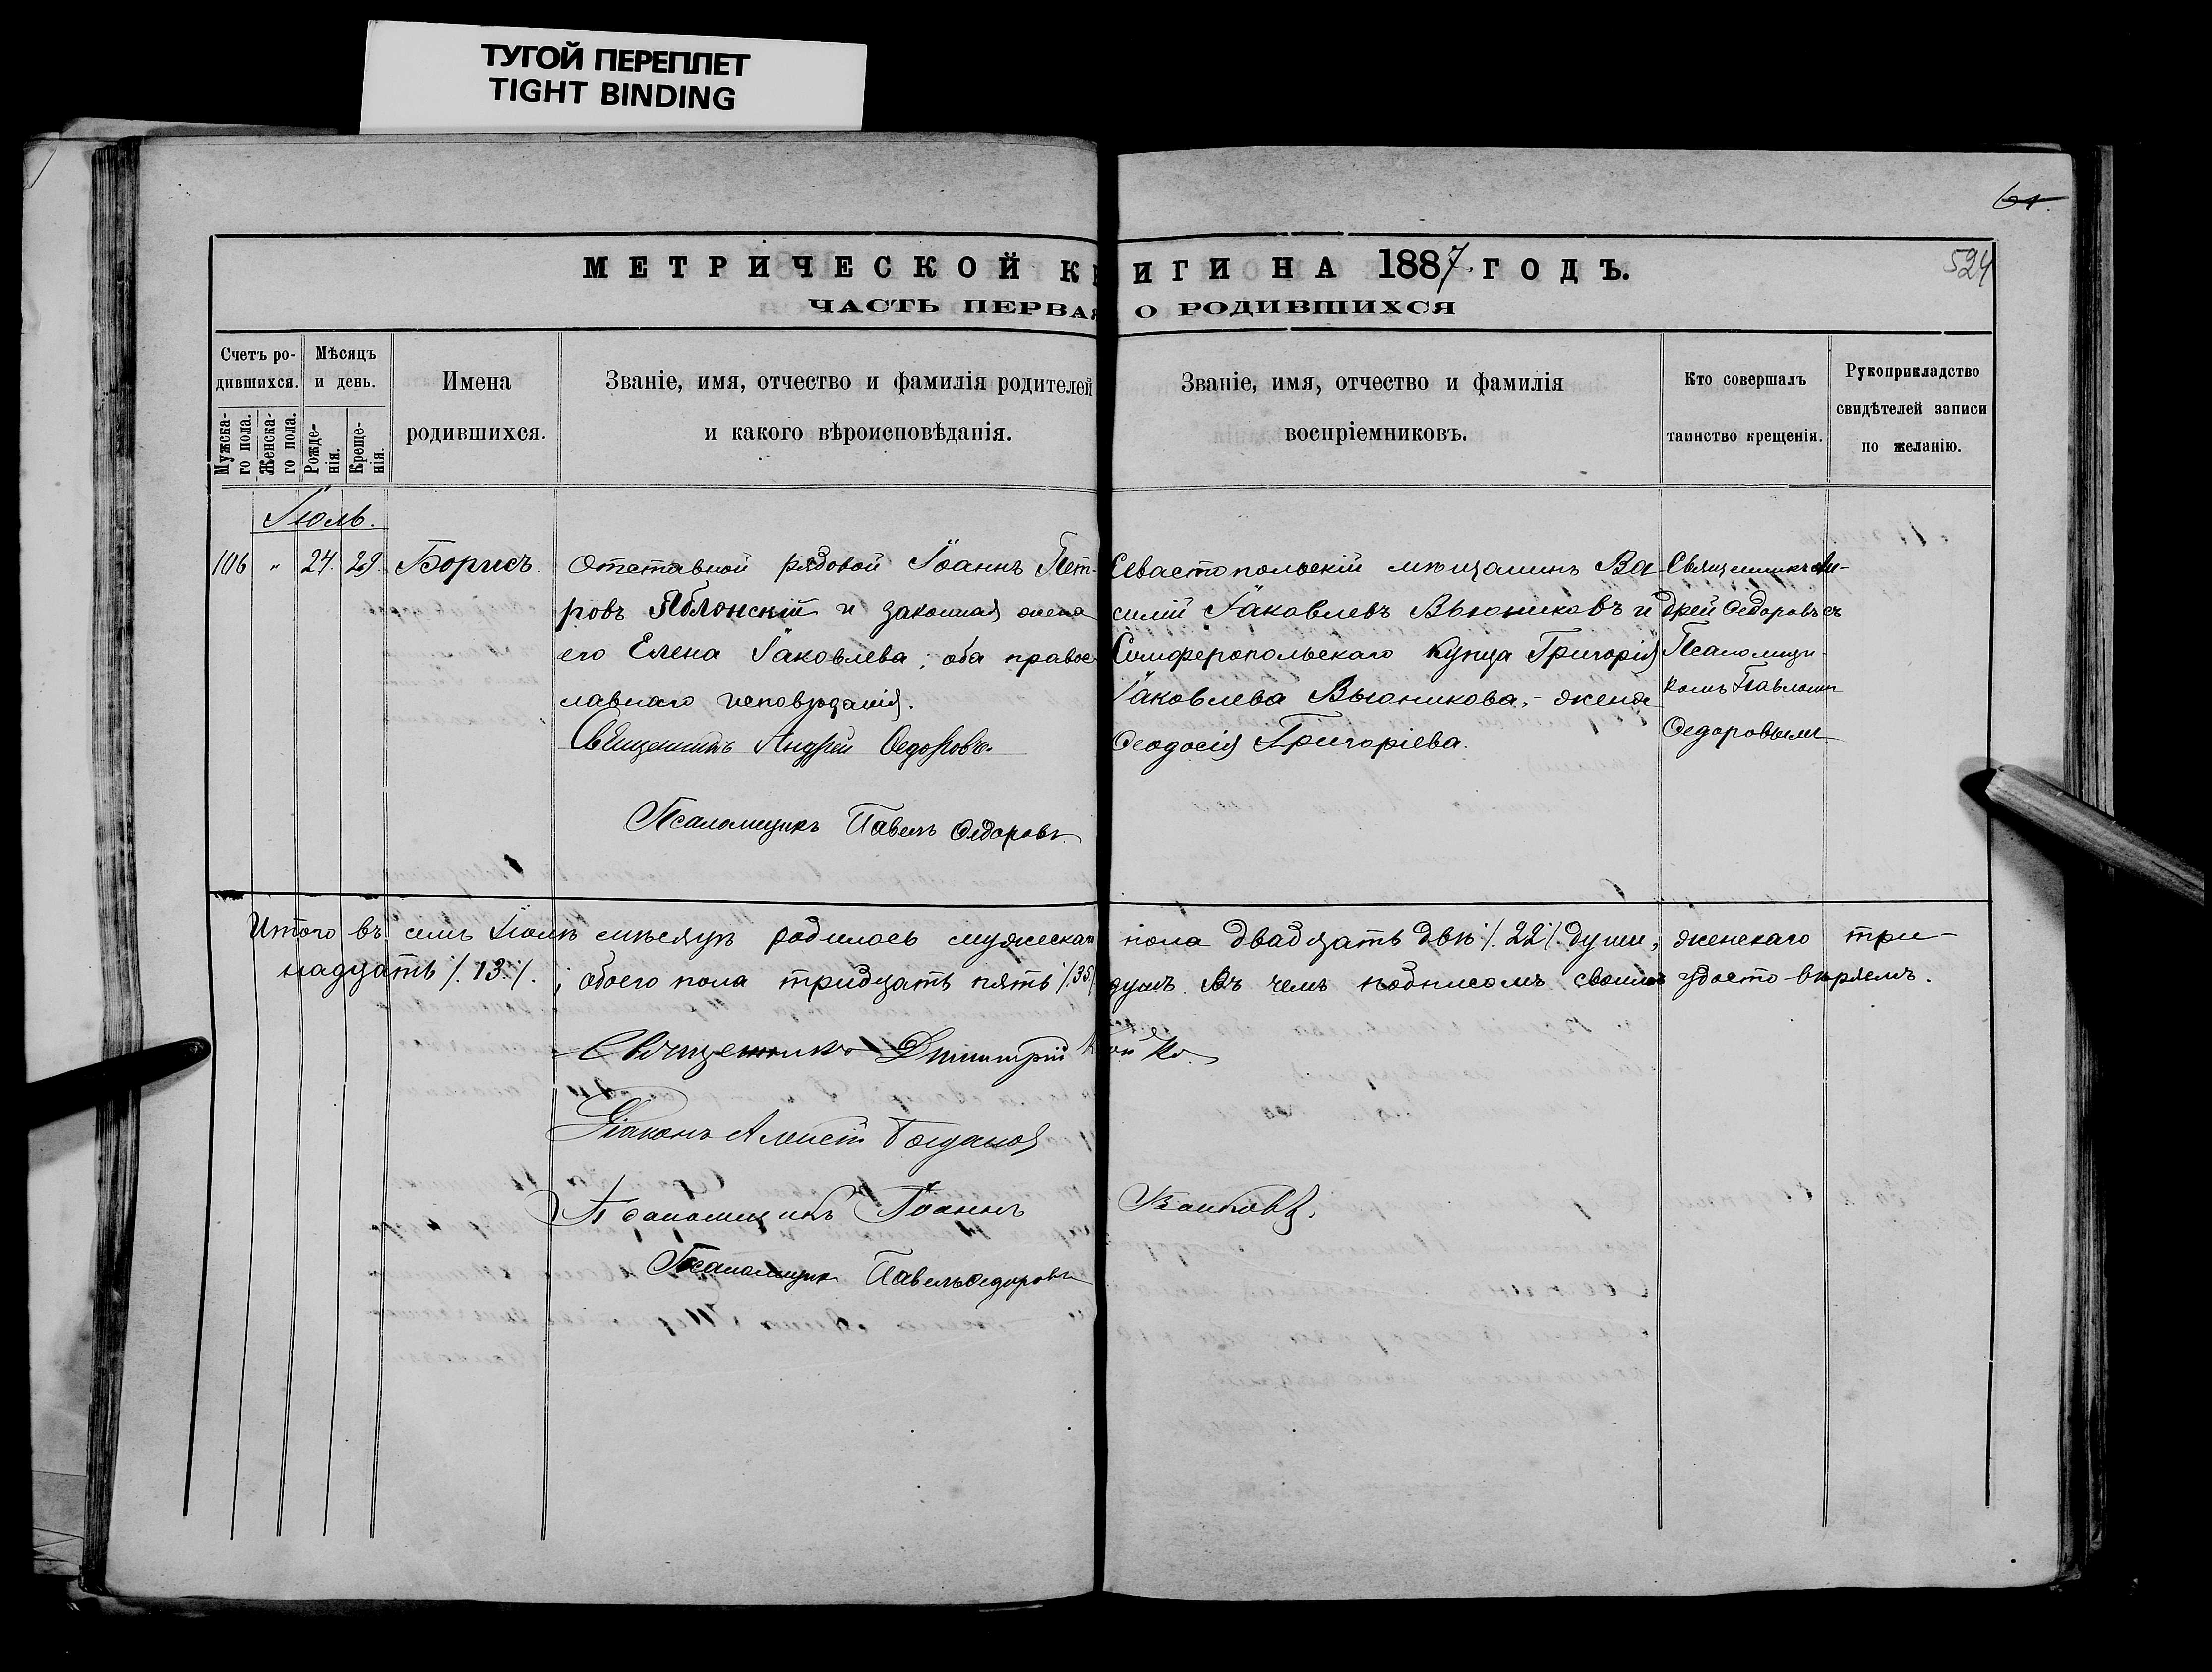 ТУГОЙ ПЕРЕПЛЕТ
TIGHT BINDING
61.
524
МЕТРИЧЕСКОЙ КНИГИ НА 1887 ГОДЪ.
ЧАСТЬ ПЕРВАЯ О РОДИВШИХСЯ
Счетъ ро-
дившихся.
Мужска-
го пола.
Женска-
го пола.
Мѣсяцъ
и день.
Рожде-
нія.
Креще-
нія.
Имена
родившихся.
Званіе, имя, отчество и фамилія родителей
и какого вѣроисповѣданія.
Званіе, имя, отчество и фамилія
воспріемниковъ.
Кто совершалъ
таинство крещенія.
Рукоприкладство
свидѣтелей записи
по желанію.
Іюль.
106 " 24. 29. Борисъ.
Отставной рядовой Іоаннъ Пет-
ровъ Яблонскій и законная жена
его Елена Іаковлева, оба правос-
лавнаго исповѣданія.
Священникъ Андрей Ѳедоровъ
Псаломщикъ Павелъ Ѳедоровъ.
Севастопольскій мѣщанинъ Ва-
силій Іаковлевъ Вьюниковъ и
Симферопольскаго купца Григорія
Іаковлева Вьюникова,- жена
Ѳеодосія Григоріева.
Священникъ Ан-
дрей Ѳедоровъ съ
Псаломщи-
комъ Павломъ
Ѳедоровымъ
Итого въ семъ Іюлѣ мѣсяцѣ родилось мужескаго пола двадцать двѣ /.22/. души, женскаго три-
надцать /.13./. ; обоего пола тридцать пять /.35/. душъ. Въ чемъ подписомъ своимъ удостовѣряемъ.
Священникъ Димитрій
Діаконъ Алексій
Псаломщикъ Іоаннъ
Псаломщикъ Павелъ Ѳедоровъ